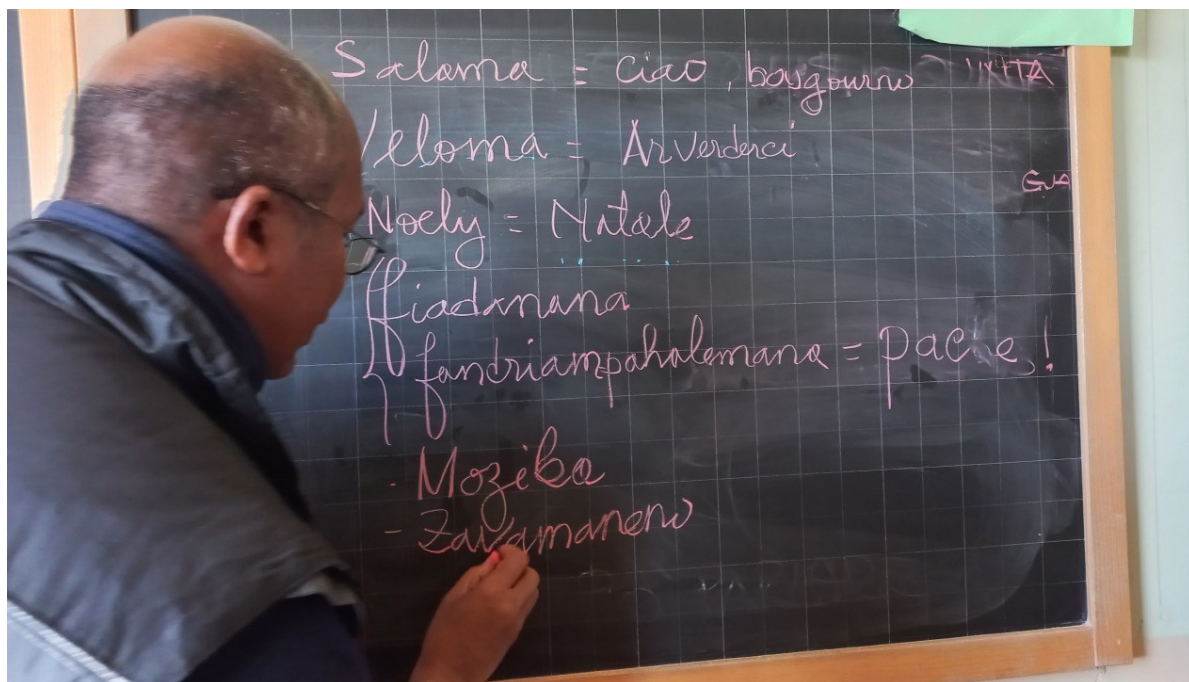 Salama = ciao, bougourno
Veloma = Arverderci
Noely = Natale
fiadanana
fandriampahalemana = pace!
. Mozika
- Zavamaneno